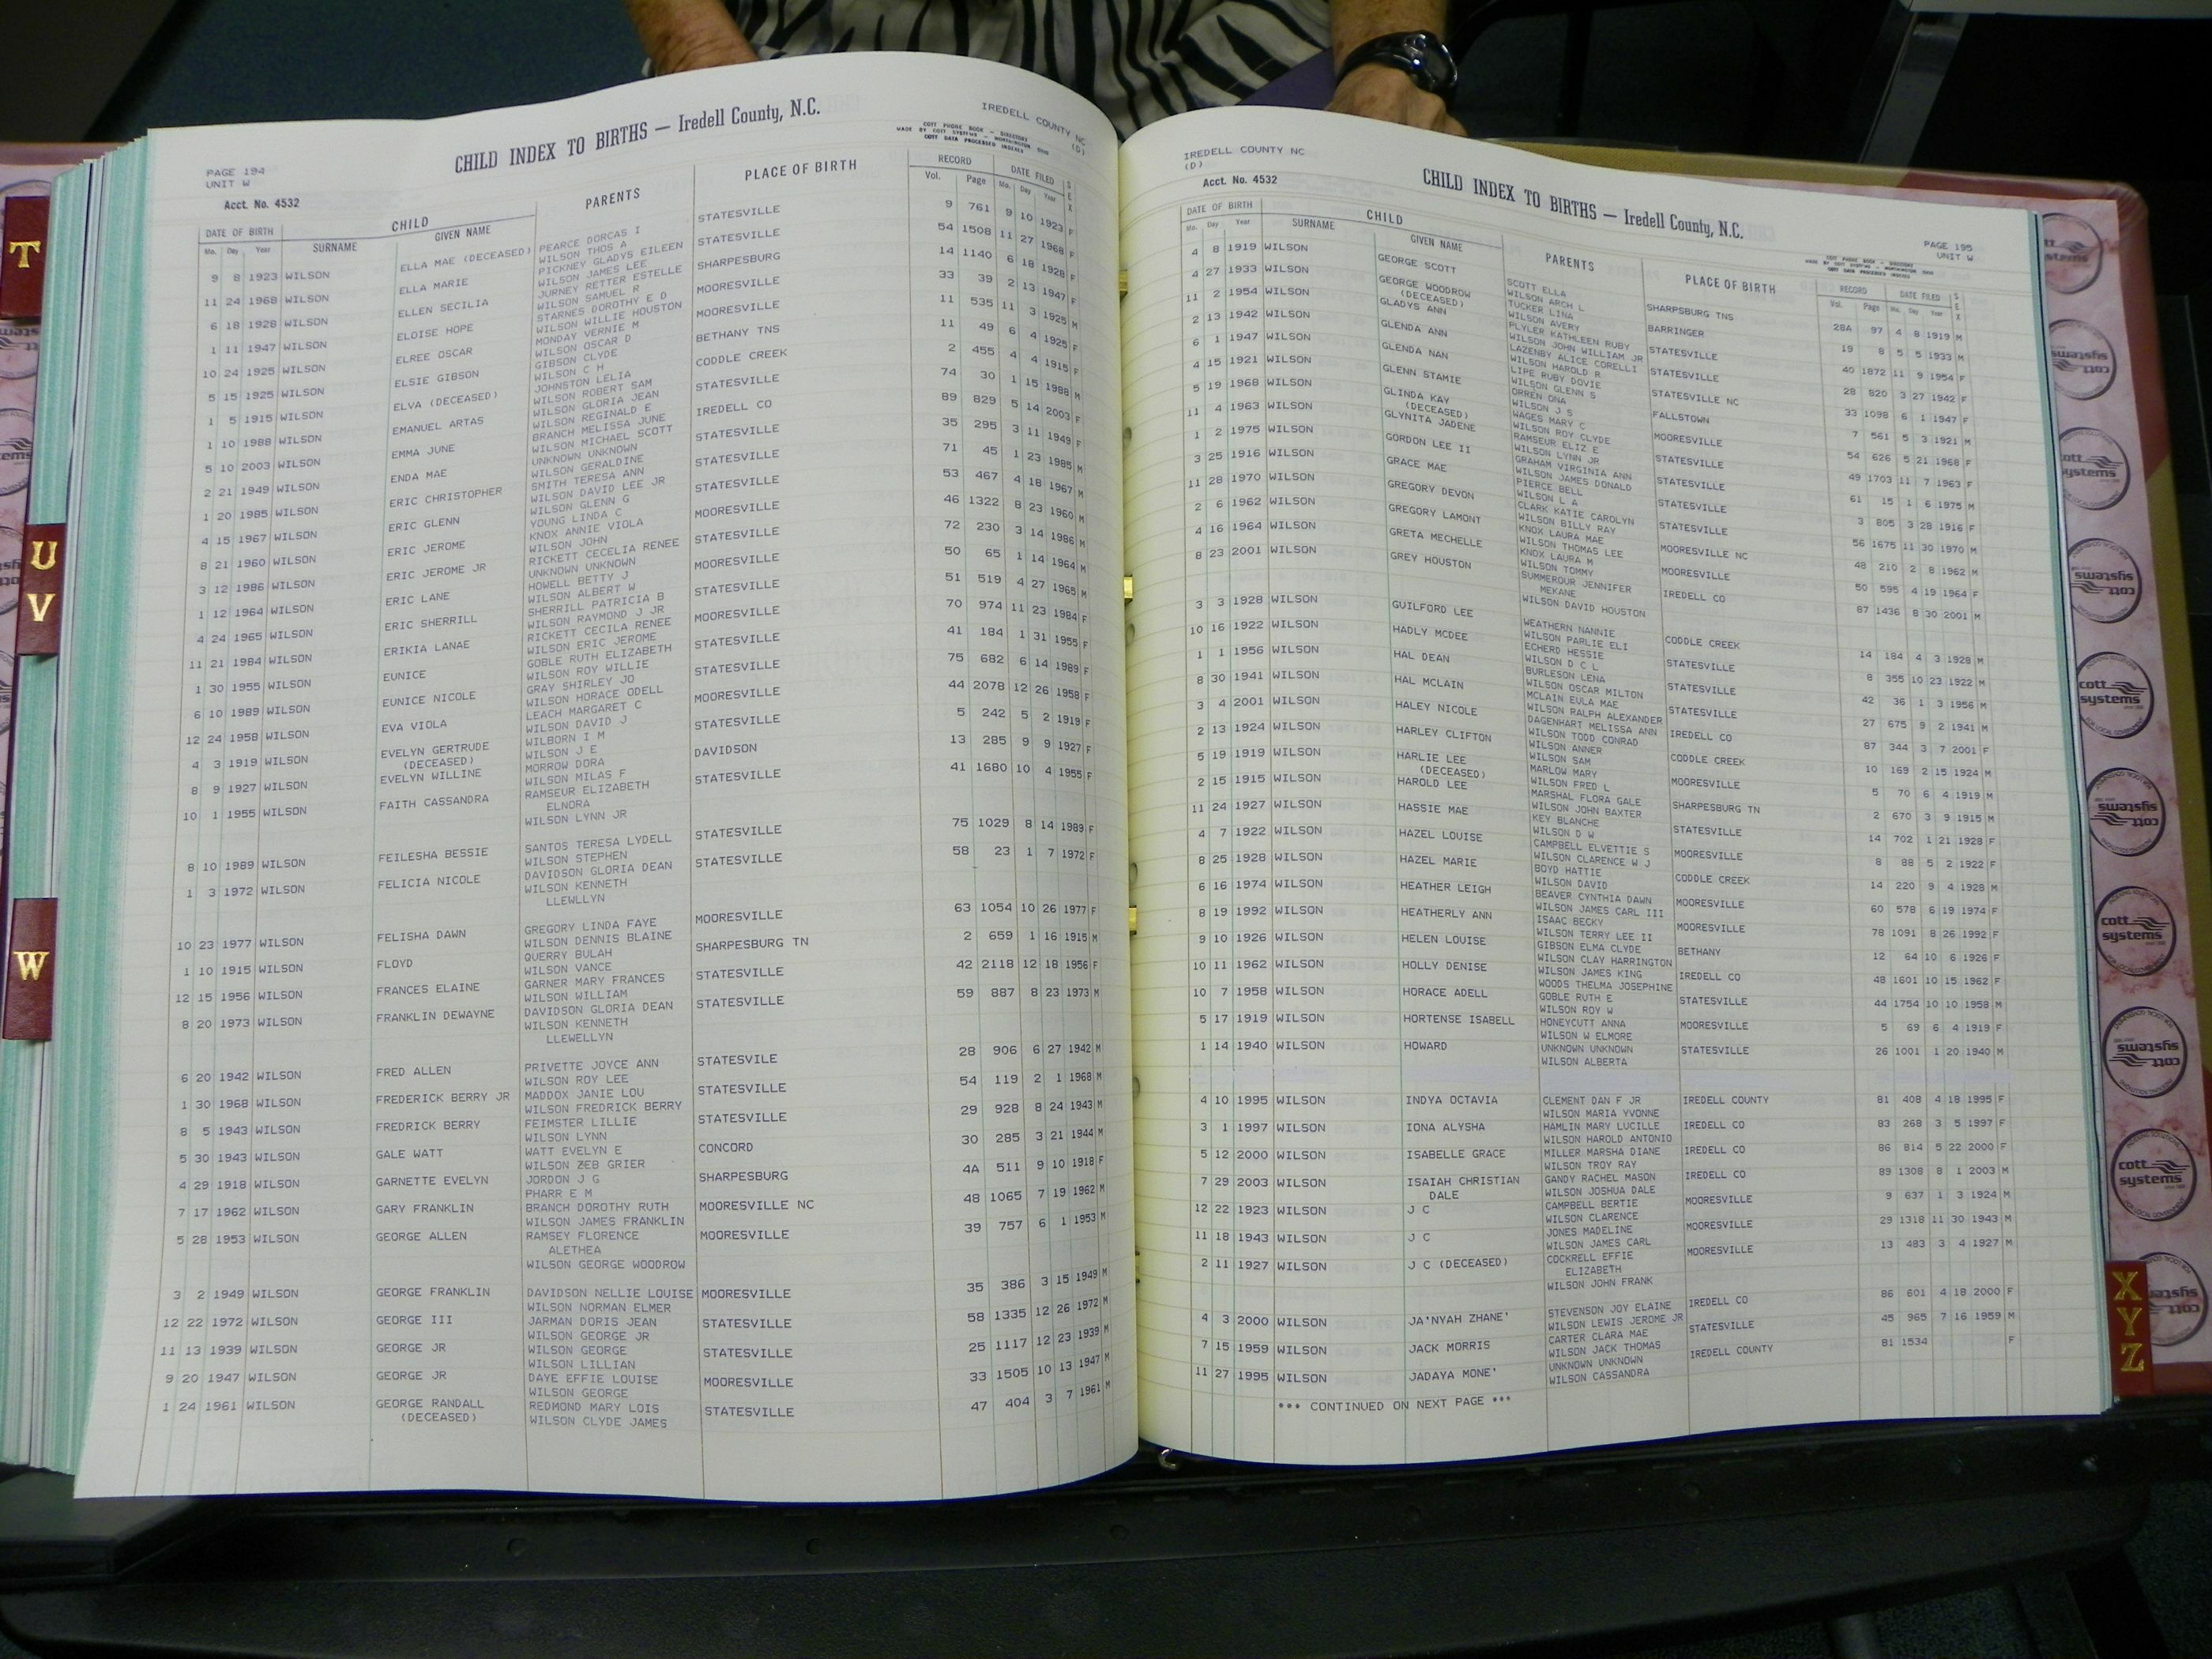 IREDELL COUNTY NC
(D)
PAGE 194
UNIT W
Acct. No. 4532
CHILD INDEX TO BIRTHS — Iredell County, N.C.
COTT PHONE BOOK - DIRECTORY
MADE BY COTT SYSTEMS - WORTHINGTON OHIO
COTT DATA PROCESSED INDEXES
DATE OF BIRTH CHILD PARENTS PLACE OF BIRTH RECORD DATE FILED SEX
Mo. Day Year SURNAME GIVEN NAME Vol. Page Mo. Day Year
9 8 1923 WILSON ELLA MAE (DECEASED) PEARCE DORCAS I STATESVILLE 9 761 9 10 1923 F
WILSON THOS A
11 24 1968 WILSON ELLA MARIE PICKNEY GLADYS EILEEN STATESVILLE 54 1508 11 27 1968 F
WILSON JAMES LEE
6 18 1928 WILSON ELLEN SECILIA JURNEY RETTER ESTELLE SHARPESBURG 14 1140 6 18 1928 F
WILSON SAMUEL R
1 11 1947 WILSON ELOISE HOPE STARNES DOROTHY E D MOORESVILLE 33 39 2 13 1947 F
WILSON WILLIE HOUSTON
10 24 1925 WILSON ELREE OSCAR MONDAY VERNIE M MOORESVILLE 11 535 11 3 1925 M
WILSON OSCAR D
5 15 1925 WILSON ELSIE GIBSON GIBSON CLYDE BETHANY TNS 11 49 6 4 1925 F
WILSON C H
1 5 1915 WILSON ELVA (DECEASED) JOHNSTON LELIA CODDLE CREEK 2 455 4 4 1915 F
WILSON ROBERT SAM
1 10 1988 WILSON EMANUEL ARTAS WILSON GLORIA JEAN STATESVILLE 74 30 1 15 1988 M
WILSON REGINALD E
5 10 2003 WILSON EMMA JUNE BRANCH MELISSA JUNE IREDELL CO 89 829 5 14 2003 F
WILSON MICHAEL SCOTT
2 21 1949 WILSON ENDA MAE UNKNOWN UNKNOWN STATESVILLE 35 295 3 11 1949 F
WILSON GERALDINE
1 20 1985 WILSON ERIC CHRISTOPHER SMITH TERESA ANN STATESVILLE 71 45 1 23 1985 M
WILSON DAVID LEE JR
4 15 1967 WILSON ERIC GLENN WILSON GLENN G STATESVILLE 53 467 4 18 1967 M
YOUNG LINDA C
8 21 1960 WILSON ERIC JEROME KNOX ANNIE VIOLA MOORESVILLE 46 1322 8 23 1960 M
WILSON JOHN
3 12 1986 WILSON ERIC JEROME JR RICKETT CECELIA RENEE STATESVILLE 72 230 3 14 1986 M
UNKNOWN UNKNOWN
1 12 1964 WILSON ERIC LANE HOWELL BETTY J MOORESVILLE 50 65 1 14 1964 M
WILSON ALBERT W
4 24 1965 WILSON ERIC SHERRILL SHERRILL PATRICIA B STATESVILLE 51 519 4 27 1965 M
WILSON RAYMOND J JR
11 21 1984 WILSON ERIKIA LANAE RICKETT CECILA RENEE MOORESVILLE 70 974 11 23 1984 F
WILSON ERIC JEROME
1 30 1955 WILSON EUNICE GOBLE RUTH ELIZABETH STATESVILLE 41 184 1 31 1955 F
WILSON ROY WILLIE
6 10 1989 WILSON EUNICE NICOLE GRAY SHIRLEY JO STATESVILLE 75 682 6 14 1989 F
WILSON HORACE ODELL
12 24 1958 WILSON EVA VIOLA LEACH MARGARET C MOORESVILLE 44 2078 12 26 1958 F
WILSON DAVID J
4 3 1919 WILSON EVELYN GERTRUDE WILBORN I M STATESVILLE 5 242 5 2 1919 F
(DECEASED) WILSON J E
8 9 1927 WILSON EVELYN WILLINE MORROW DORA DAVIDSON 13 285 9 9 1927 F
WILSON MILAS F
10 1 1955 WILSON FAITH CASSANDRA RAMSEUR ELIZABETH STATESVILLE 41 1680 10 4 1955 F
ELNORA
WILSON LYNN JR
8 10 1989 WILSON FEILESHA BESSIE SANTOS TERESA LYDELL STATESVILLE 75 1029 8 14 1989 F
WILSON STEPHEN
1 3 1972 WILSON FELICIA NICOLE DAVIDSON GLORIA DEAN STATESVILLE 58 23 1 7 1972 F
WILSON KENNETH
LLEWLLYN
10 23 1977 WILSON FELISHA DAWN GREGORY LINDA FAYE MOORESVILLE 63 1054 10 26 1977 F
WILSON DENNIS BLAINE
1 10 1915 WILSON FLOYD QUERRY BULAH SHARPESBURG TN 2 659 1 16 1915 M
WILSON VANCE
12 15 1956 WILSON FRANCES ELAINE GARNER MARY FRANCES STATESVILLE 42 2118 12 18 1956 F
WILSON WILLIAM
8 20 1973 WILSON FRANKLIN DEWAYNE DAVIDSON GLORIA DEAN STATESVILLE 59 887 8 23 1973 M
WILSON KENNETH
LLEWELLYN
6 20 1942 WILSON FRED ALLEN PRIVETTE JOYCE ANN STATESVILE 28 906 6 27 1942 M
WILSON ROY LEE
1 30 1968 WILSON FREDERICK BERRY JR MADDOX JANIE LOU STATESVILLE 54 119 2 1 1968 M
WILSON FREDRICK BERRY
8 5 1943 WILSON FREDRICK BERRY FEIMSTER LILLIE STATESVILLE 29 928 8 24 1943 M
WILSON LYNN
5 30 1943 WILSON GALE WATT WATT EVELYN E CONCORD 30 285 3 21 1944 M
WILSON ZEB GRIER
4 29 1918 WILSON GARNETTE EVELYN JORDON J G SHARPESBURG 4A 511 9 10 1918 F
PHARR E M
7 17 1962 WILSON GARY FRANKLIN BRANCH DOROTHY RUTH MOORESVILLE NC 48 1065 7 19 1962 M
WILSON JAMES FRANKLIN
5 28 1953 WILSON GEORGE ALLEN RAMSEY FLORENCE MOORESVILLE 39 757 6 1 1953 M
ALETHEA
WILSON GEORGE WOODROW
3 2 1949 WILSON GEORGE FRANKLIN DAVIDSON NELLIE LOUISE MOORESVILLE 35 386 3 15 1949 M
WILSON NORMAN ELMER
12 22 1972 WILSON GEORGE III JARMAN DORIS JEAN STATESVILLE 58 1335 12 26 1972 M
WILSON GEORGE JR
11 13 1939 WILSON GEORGE JR WILSON GEORGE STATESVILLE 25 1117 12 23 1939 M
WILSON LILLIAN
9 20 1947 WILSON GEORGE JR DAYE EFFIE LOUISE MOORESVILLE 33 1505 10 13 1947 M
WILSON GEORGE
1 24 1961 WILSON GEORGE RANDALL REDMOND MARY LOIS STATESVILLE 47 404 3 7 1961 M
(DECEASED) WILSON CLYDE JAMES
IREDELL COUNTY NC
(D)
Acct. No. 4532
CHILD INDEX TO BIRTHS — Iredell County, N.C.
PAGE 195
UNIT W
COTT PHONE BOOK - DIRECTORY
MADE BY COTT SYSTEMS - WORTHINGTON OHIO
COTT DATA PROCESSED INDEXES
DATE OF BIRTH CHILD PARENTS PLACE OF BIRTH RECORD DATE FILED SEX
Mo. Day Year SURNAME GIVEN NAME Vol. Page Mo. Day Year
4 8 1919 WILSON GEORGE SCOTT SCOTT ELLA SHARPSBURG TNS 28A 97 4 8 1919 M
WILSON ARCH L
4 27 1933 WILSON GEORGE WOODROW TUCKER LINA BARRINGER 19 8 5 5 1933 M
(DECEASED) WILSON AVERY
11 2 1954 WILSON GLADYS ANN PLYLER KATHLEEN RUBY STATESVILLE 40 1872 11 9 1954 F
WILSON JOHN WILLIAM JR
2 13 1942 WILSON GLENDA ANN LAZENBY ALICE CORELLI STATESVILLE 28 820 3 27 1942 F
WILSON HAROLD R
6 1 1947 WILSON GLENDA NAN LIPE RUBY DOVIE STATESVILLE NC 33 1098 6 1 1947 F
WILSON GLENN S
4 15 1921 WILSON GLENN STAMIE ORREN ONA FALLSTOWN 7 561 5 3 1921 M
WILSON J S
5 19 1968 WILSON GLINDA KAY WAGES MARY C MOORESVILLE 54 626 5 21 1968 F
(DECEASED) WILSON ROY CLYDE
11 4 1963 WILSON GLYNITA JADENE RAMSEUR ELIZ E STATESVILLE 49 1703 11 7 1963 F
WILSON LYNN JR
1 2 1975 WILSON GORDON LEE II GRAHAM VIRGINIA ANN STATESVILLE 61 15 1 6 1975 M
WILSON JAMES DONALD
3 25 1916 WILSON GRACE MAE PIERCE BELL STATESVILLE 3 805 3 28 1916 F
WILSON L A
11 28 1970 WILSON GREGORY DEVON CLARK KATIE CAROLYN MOORESVILLE NC 56 1675 11 30 1970 M
WILSON BILLY RAY
2 6 1962 WILSON GREGORY LAMONT KNOX LAURA MAE MOORESVILLE 48 210 2 8 1962 M
WILSON THOMAS LEE
4 16 1964 WILSON GRETA MECHELLE KNOX LAURA M IREDELL CO 50 595 4 19 1964 F
WILSON TOMMY
8 23 2001 WILSON GREY HOUSTON SUMMEROUR JENNIFER 87 1436 8 30 2001 M
MEKANE
WILSON DAVID HOUSTON
3 3 1928 WILSON GUILFORD LEE WEATHERN NANNIE CODDLE CREEK 14 184 4 3 1928 M
WILSON PARLIE ELI
10 16 1922 WILSON HADLY MCDEE ECHERD HESSIE STATESVILLE 8 355 10 23 1922 M
WILSON D C L
1 1 1956 WILSON HAL DEAN BURLESON LENA STATESVILLE 42 36 1 3 1956 M
WILSON OSCAR MILTON
8 30 1941 WILSON HAL MCLAIN MCLAIN EULA MAE STATESVILLE 27 675 9 2 1941 M
WILSON RALPH ALEXANDER
3 4 2001 WILSON HALEY NICOLE DAGENHART MELISSA ANN IREDELL CO 87 344 3 7 2001 F
WILSON TODD CONRAD
2 13 1924 WILSON HARLEY CLIFTON WILSON ANNER CODDLE CREEK 10 169 2 15 1924 M
WILSON SAM
5 19 1919 WILSON HARLIE LEE MARLOW MARY MOORESVILLE 5 70 6 4 1919 M
(DECEASED) WILSON FRED L
2 15 1915 WILSON HAROLD LEE MARSHAL FLORA GALE SHARPESBURG TN 2 670 3 9 1915 M
WILSON JOHN BAXTER
11 24 1927 WILSON HASSIE MAE KEY BLANCHE STATESVILLE 14 702 1 21 1928 F
WILSON D W
4 7 1922 WILSON HAZEL LOUISE CAMPBELL ELVETTIE S MOORESVILLE 8 88 5 2 1922 F
WILSON CLARENCE W J
8 25 1928 WILSON HAZEL MARIE BOYD HATTIE CODDLE CREEK 14 220 9 4 1928 M
WILSON DAVID
6 16 1974 WILSON HEATHER LEIGH BEAVER CYNTHIA DAWN MOORESVILLE 60 578 6 19 1974 F
WILSON JAMES CARL III
8 19 1992 WILSON HEATHERLY ANN ISAAC BECKY MOORESVILLE 78 1091 8 26 1992 F
WILSON TERRY LEE II
9 10 1926 WILSON HELEN LOUISE GIBSON ELMA CLYDE BETHANY 12 64 10 6 1926 F
WILSON CLAY HARRINGTON
10 11 1962 WILSON HOLLY DENISE WILSON JAMES KING IREDELL CO 48 1601 10 15 1962 F
WOODS THELMA JOSEPHINE
10 7 1958 WILSON HORACE ADELL GOBLE RUTH E STATESVILLE 44 1754 10 10 1958 M
WILSON ROY W
5 17 1919 WILSON HORTENSE ISABELL HONEYCUTT ANNA MOORESVILLE 5 69 6 4 1919 F
WILSON W ELMORE
1 14 1940 WILSON HOWARD UNKNOWN UNKNOWN STATESVILLE 26 1001 1 20 1940 M
WILSON ALBERTA
4 10 1995 WILSON INDYA OCTAVIA CLEMENT DAN F JR IREDELL COUNTY 81 408 4 18 1995 F
WILSON MARIA YVONNE
3 1 1997 WILSON IONA ALYSHA HAMLIN MARY LUCILLE IREDELL CO 83 268 3 5 1997 F
WILSON HAROLD ANTONIO
5 12 2000 WILSON ISABELLE GRACE MILLER MARSHA DIANE IREDELL CO 86 814 5 22 2000 F
WILSON TROY RAY
7 29 2003 WILSON ISAIAH CHRISTIAN GANDY RACHEL MASON IREDELL CO 89 1308 8 1 2003 M
DALE WILSON JOSHUA DALE
12 22 1923 WILSON J C CAMPBELL BERTIE MOORESVILLE 9 637 1 3 1924 M
WILSON CLARENCE
11 18 1943 WILSON J C JONES MADELINE MOORESVILLE 29 1318 11 30 1943 M
WILSON JAMES CARL
2 11 1927 WILSON J C (DECEASED) COCKRELL EFFIE MOORESVILLE 13 483 3 4 1927 M
ELIZABETH
WILSON JOHN FRANK
4 3 2000 WILSON JA'NYAH ZHANE' STEVENSON JOY ELAINE IREDELL CO 86 601 4 18 2000 F
WILSON LEWIS JEROME JR
7 15 1959 WILSON JACK MORRIS CARTER CLARA MAE STATESVILLE 45 965 7 16 1959 M
WILSON JACK THOMAS
11 27 1995 WILSON JADAYA MONE' UNKNOWN UNKNOWN IREDELL COUNTY 81 1534 F
WILSON CASSANDRA
*** CONTINUED ON NEXT PAGE ***
T
U
V
W
X
Y
Z
cott systems